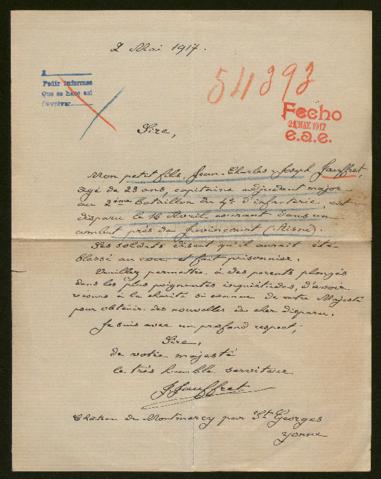 2 Mai 1917.
A
Pedir informes
Que se hace así
54393
Fecho
24 MAY. 1917
e.a.e.
Sire,
Mon petit fils, Jean-Charles-Joseph Jauffret,
agé de 23 ans, capitaine adjudant major
au 2ème bataillon du 4e d'infanterie, est
disparu le 16 Avril courant dans un
combat près de Juvincourt (Aisne).
Des soldats disent qu'il aurait été
blessé au et fait prisonnier.
Veuillez permettre, à des parents plongés
dans les plus poignantes inquiétudes, d'avoir
recours à la charité si connue de votre Majesté
pour obtenir des nouvelles du cher disparu.
Je suis avec un profond respect,
Sire,
de votre majesté
le très humble serviteur
J. Jauffret
Château de Montmercy par St Georges
Yonne